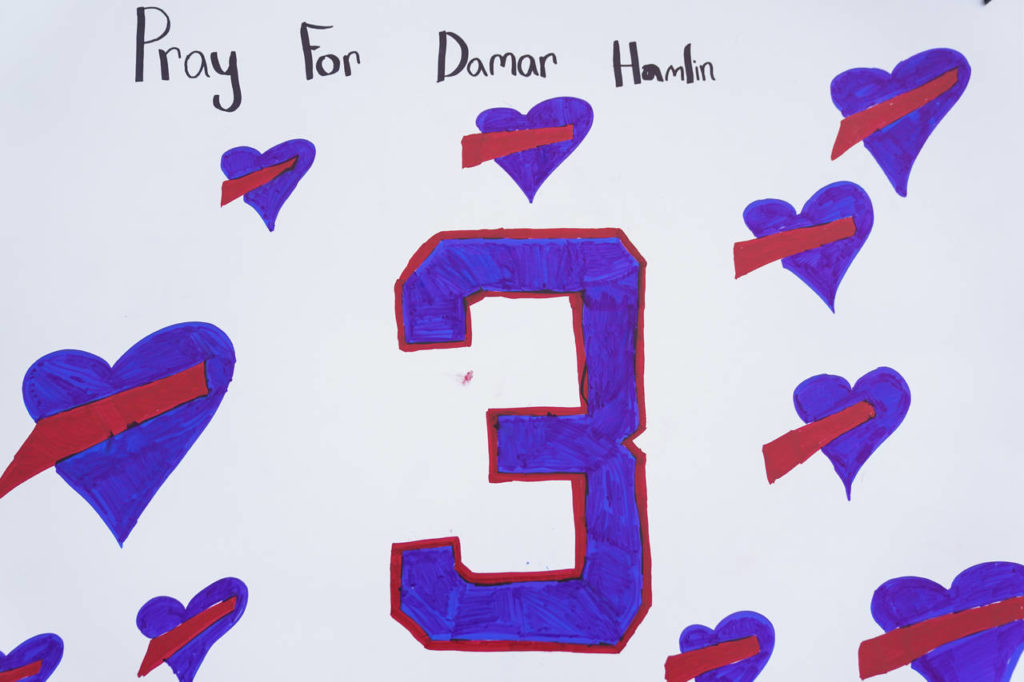 Pray For Damar Hamlin
3